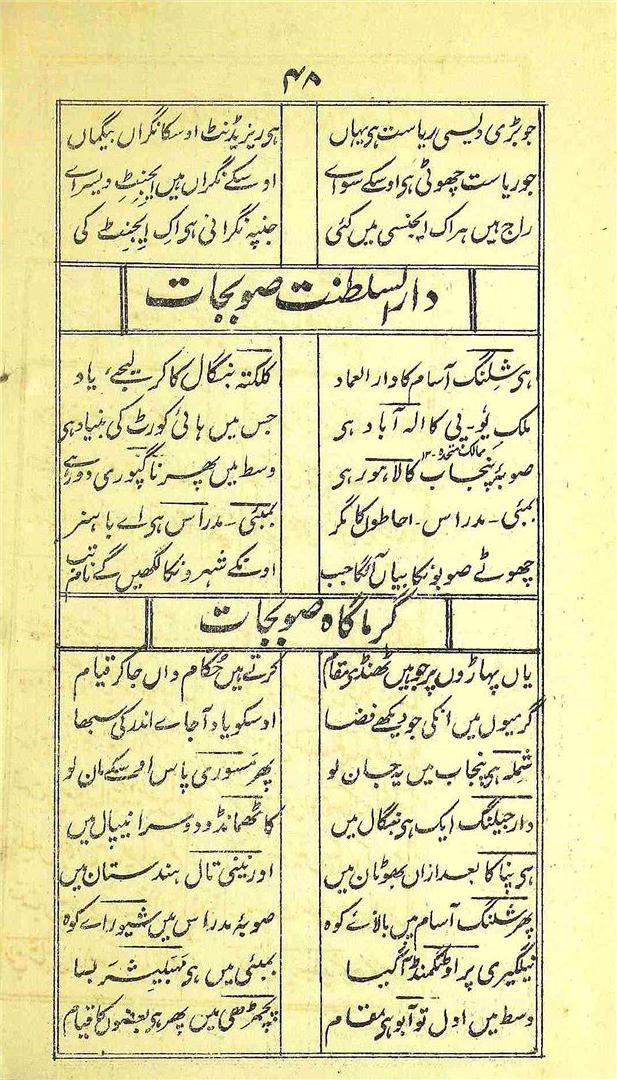 ۴۸
جو بڑی دیسی ریاست ہی یہاں ہی ریزیڈنٹ اوسکا نگراں بیگماں
جو ریاست چھوٹی ہی اوسکے سواے اوسکے نگراں ہیں ایجنٹِ ویسراے
راج ہیں ہر اک ایجنسی میں کئی جنپہ نگرانی ہی اک ایجنٹ کی
دار السلطنت صوبجات
ہی شِلنگ آسام کا دار العماد کلکتہ بنگال کا کر لیجے، یاد
ملکِ یُو۔پی کا الہ آباد ہی جس میں ہائی کورٹ کی بنیاد ہی
ممالک متحدہ ۱۲
صوبۂ پنجاب کا لاہور ہی وسط میں پھر ناگپوری دور ہے
بمبئی۔ مدراس۔ احاطوں کا مگر بمبئی۔ مدراس ہی اے باہنر
چھوٹے صوبونکا بیاں آئگا جب اونکے شہرونکا لکھیں گے نام تب
گرماگاہ صوبجات
یاں پہاڑوں پر جو ہیں ٹھنڈی مقام کرتے ہیں حُکام واں جا کر قیام
گرمیوں میں انکی جو دیکھے فضا اوسکو یاد آجاے اندر کی سبھا
شملہ ہی پنجاب میں یہ جان لو پھر مسوری پاس اوسکے مان لو
دارجیلنگ ایک ہی بنگال میں کاٹھمانڈو دوسرا نیپال میں
ہی پنا کا بعد ازاں بھوٹان میں اور نینی تال ہندستان میں
پھر شلنگ آسام میں بالائے کوہ صوبۂ مدراس میں شیوراے کوہ
نیلگیری پر اوٹکمنڈ گیا بمبئی میں ہی مہبلیشر بسا
وسط میں اول تو آبو ہی مقام پچمڑھی میں پھر ہی بعضوں کا قیام